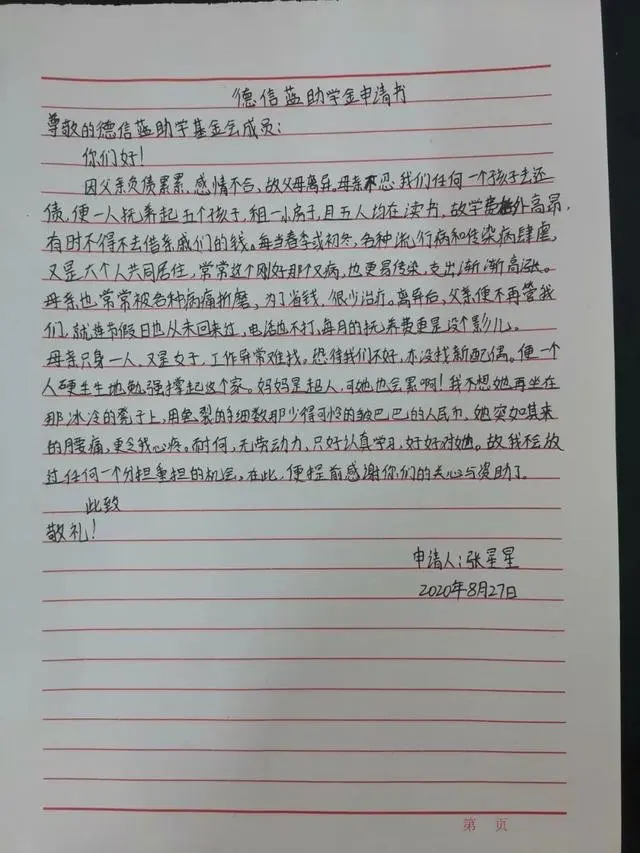 德信蓝助学金申请书
尊敬的德信蓝助学基金会成员：
你们好！
因父亲负债累累，感情不合，故父母离异。母亲不忍我们任何一个孩子去还
债，便一人抚养起五个孩子，租一小房子，且五人均在读书，故学费格外高昂，
有时不得不去借亲戚们的钱。每当春季或初冬，各种流行病和传染病肆虐，
又是六个人共同居住，常常这个刚好那个又病，也更易传染，支出渐渐高涨。
母亲也常常被各种病痛折磨，为了省钱，很少治疗。离异后，父亲便不再管我
们，就连节假日也从未回来过，电话也不打，每月的抚养费更是没个影儿。
母亲只身一人，又是女子，工作异常难找。恐待我们不好，亦没找新配偶。便一个
人硬生生地勉强撑起这个家。妈妈是超人，可她也会累啊！我不想她再坐在
那冰冷的凳子上，用龟裂的手细数那少得可怜的皱巴巴的人民币，她突如其来
的腰痛，更令我心疼。耐何，无劳动力，只好认真学习，好好对她。故我不会放
过任何一个分担重担的机会。在此，便提前感谢你们的关心与资助了。
此致
敬礼！
申请人：张星星
2020年8月27日
第 页